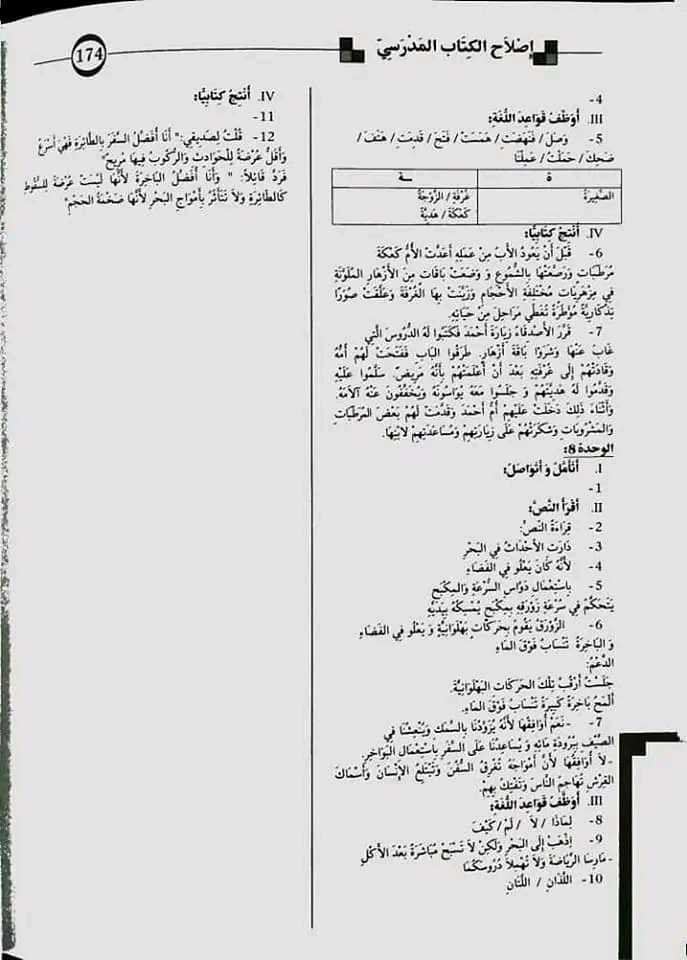 174
إِصْلاَح الكِتَاب المَدْرَسِيّ
4-
III. أُوَظِّفُ قَوَاعِدَ اللُّغَةِ:
5- وَصَلَ / فَنَهَضَتْ / هَمَسَتْ / فَتَحَ / قَدِمَتْ / هَتَفَ /
ضَحِكَ / حَمَلَتْ / عَمِلْنَا
ة ـة
الصَّغِيرَةُ غُرْفَةِ / الزَّوْجَةُ
كَعْكَةً / هَدِيَّةً
IV. أُنْتِجُ كِتَابِيًّا:
6- قَبْلَ أَنْ يَعُودَ الأَبُ مِنْ عَمَلِهِ أَعَدَّتْ الأُمُّ كَعْكَةَ
مُرَطَّبَات وَرَصَّعَتْهَا بِالشُّمُوعِ وَ وَضَعَتْ بَاقَات مِنَ الأَزْهَارِ المُلَوَّنَةِ
فِي مِزْهَرِيَّات مُخْتَلِفَةِ الأَحْجَامِ وَزَيَّنَتْ بِهَا الغُرْفَةَ وَعَلَّقَتْ صُوَرًا
تِذْكَارِيَّةً مُؤَطَّرَةً تُغَطِّي مَرَاحِلَ مِنْ حَيَاتِهِ.
7- قَرَّرَ الأَصْدِقَاءُ زِيَارَةَ أَحْمَدَ فَكَتَبُوا لَهُ الدُّرُوسَ الَّتِي
غَابَ عَنْهَا وَشَرَوْا بَاقَةَ أَزْهَارٍ. طَرَقُوا البَابَ فَفَتَحَتْ لَهُمْ أُمُّهُ
وَقَادَتْهُمْ إِلَى غُرْفَتِهِ بَعْدَ أَنْ أَعْلَمَتْهُمْ بِأَنَّهُ مَرِيضٌ. سَلَّمُوا عَلَيْهِ
وَقَدَّمُوا لَهُ هَدِيَّتَهُمْ وَ جَلَسُوا مَعَهُ يُوَاسُونَهُ وَيُخَفِّفُونَ عَنْهُ آلاَمَهُ.
وَأَثْنَاءَ ذَلِكَ دَخَلَتْ عَلَيْهِمْ أُمُّ أَحْمَدَ وَقَدَّمَتْ لَهُمْ بَعْضَ المُرَطَّبَاتِ
وَالمَشْرُوبَاتِ وَشَكَرَتْهُمْ عَلَى زِيَارَتِهِمْ وَمُسَاعَدَتِهِمْ لابْنِهَا.
الوحدة 8:
I. أَتَأَمَّلُ وَ أَتَوَاصَلُ:
1-
II. أَقْرَأُ النَّصَّ:
2- قِرَاءَةُ النَّصِّ:
3- دَارَت الأَحْدَاثُ فِي البَحْرِ
4- لأَنَّهُ كَانَ يَعْلُو فِي الفَضَاءِ
5- بِاسْتِعْمَالِ دَوَّاسِ السُّرْعَةِ وَالمِكْبَحِ
يَتَحَكَّمُ فِي سُرْعَةِ زَوْرَقِهِ بِمِكْبَحٍ يُمْسِكُهُ بِيَدَيْهِ
6- الزَّوْرَقُ يَقُومُ بِحَرَكَاتٍ بَهْلَوَانِيَّةٍ وَ يَعْلُو فِي الفَضَاءِ
وَ البَاخِرَةُ تَنْسَابُ فَوْقَ المَاءِ
الدَّعْمُ:
جَلَسْتُ أَرْقُبُ تِلْكَ الحَرَكَات البَهْلَوَانِيَّةَ.
أَلْمَحُ بَاخِرَةً كَبِيرَةً تَنْسَابُ فَوْقَ المَاءِ.
7- -نَعَمْ أُوَافِقُهَا لأَنَّهُ يُزَوِّدُنَا بِالسَّمَكِ وَيُنْعِشُنَا فِي
الصَّيْفِ بِبُرُودَةِ مَائِهِ وَ يُسَاعِدُنَا عَلَى السَّفَرِ بِاسْتِعْمَالِ البَوَاخِرِ.
-لاَ أُوَافِقُهَا لأَنَّ أَمْوَاجَهُ تُغْرِقُ السُّفُنَ وَتَبْتَلِعُ الإِنْسَانَ وَأَسْمَاكَ
القِرْشِ تُهَاجِمُ النَّاسَ وَتَفْتِكُ بِهِمْ.
III. أُوَظِّفُ قَوَاعِدَ اللُّغَةِ:
8- لِمَاذَا / لاَ / لَمْ / كَيْفَ
9- اِذْهَبْ إِلَى البَحْرِ وَلَكِنْ لاَ تَسْبَحْ مُبَاشَرَةً بَعْدَ الأَكْلِ
-مَارِسَا الرِّيَاضَةَ وَلاَ تُهْمِلاَ دُرُوسَكُمَا
10- اللَّذَانِ / اللَّتَانِ
IV. أُنْتِجُ كِتَابِيًّا:
11-
12- قُلْتُ لِصَدِيقِي:" أَنَا أُفَضِّلُ السَّفَرَ بِالطَّائِرَةِ فَهْيَ أَسْرَعُ
وَأَقَلُّ عُرْضَةً لِلْحَوَادِثِ وَالرُّكُوبُ فِيهَا مُرِيحٌ"
فَرَدَّ قَائِلاً: " وَأَنَا أُفَضِّلُ البَاخِرَةَ لأَنَّهَا لَيْسَتْ عُرْضَةً لِلسُّقُوطِ
كَالطَّائِرَةِ وَلاَ تَتَأَثَّرُ بِأَمْوَاجِ البَحْرِ لأَنَّهَا ضَخْمَةُ الحَجْمِ"